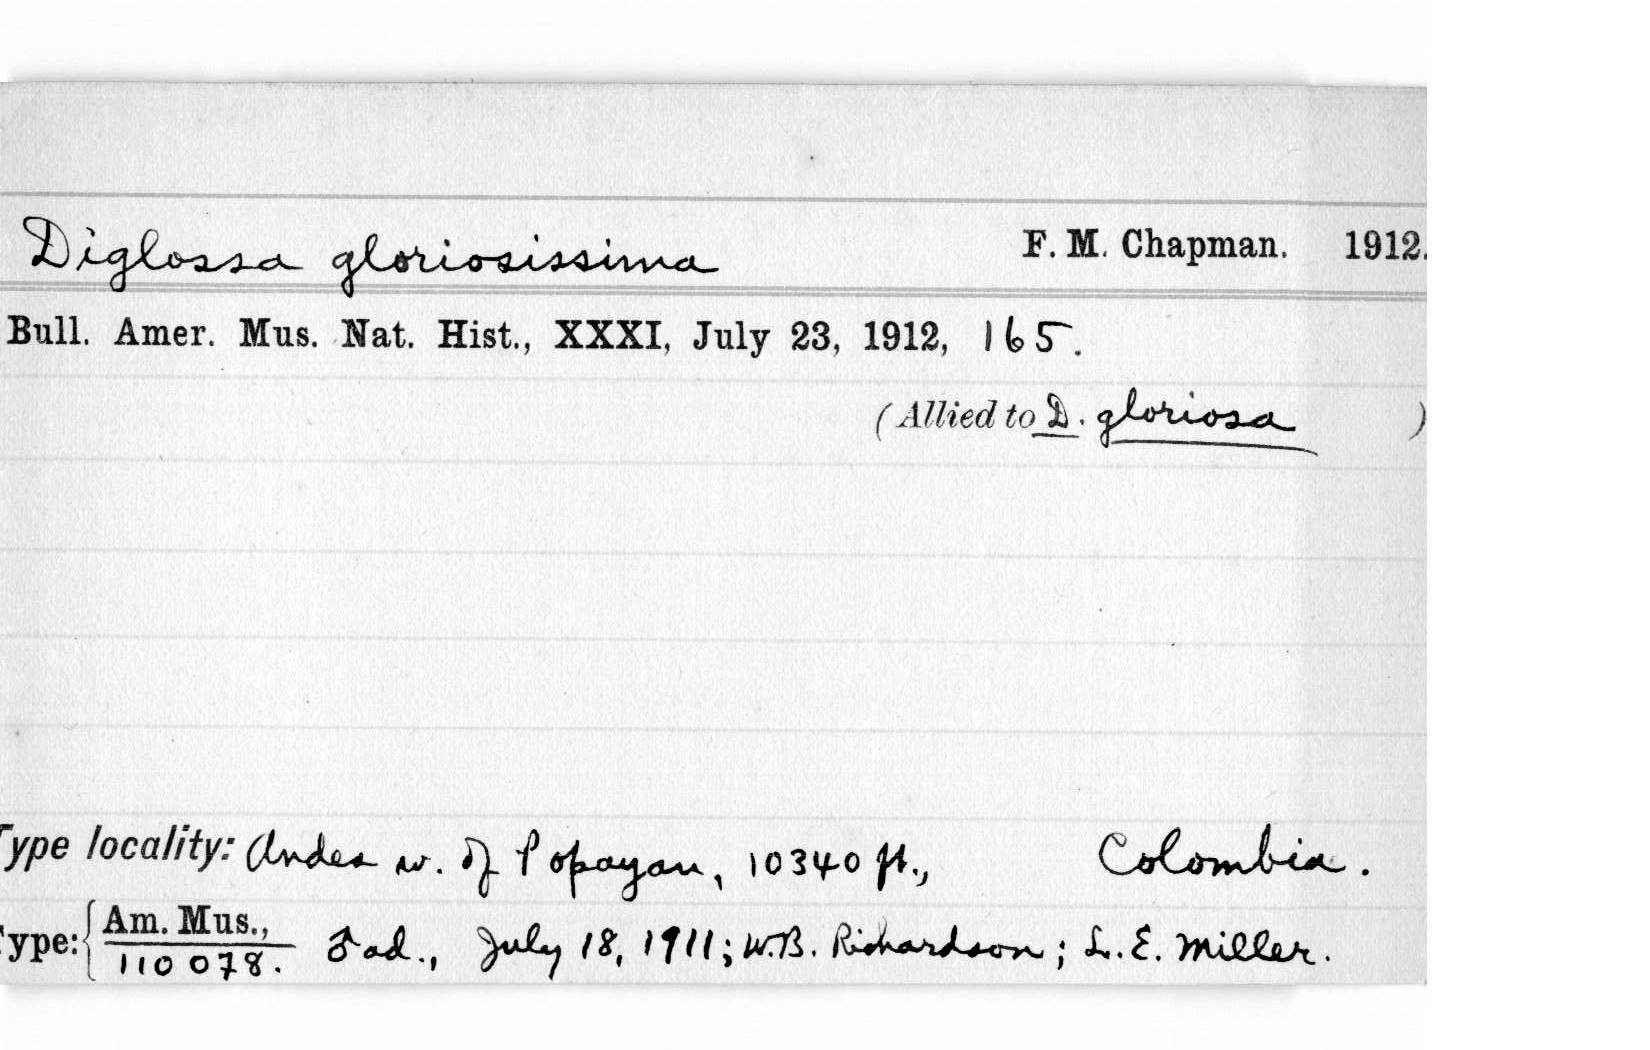 Diglossa gloriosissima F. M. Chapman. 1912.
Bull. Amer. Mus. Nat. Hist., XXXI, July 23, 1912, 165.
(Allied to D. gloriosa )
Type locality: Andes w. of Popayan, 10340 ft., Colombia.
Type: { Am. Mus., ♂ ad., July 18, 1911; W.B. Richardson; L. E. Miller.
110078.